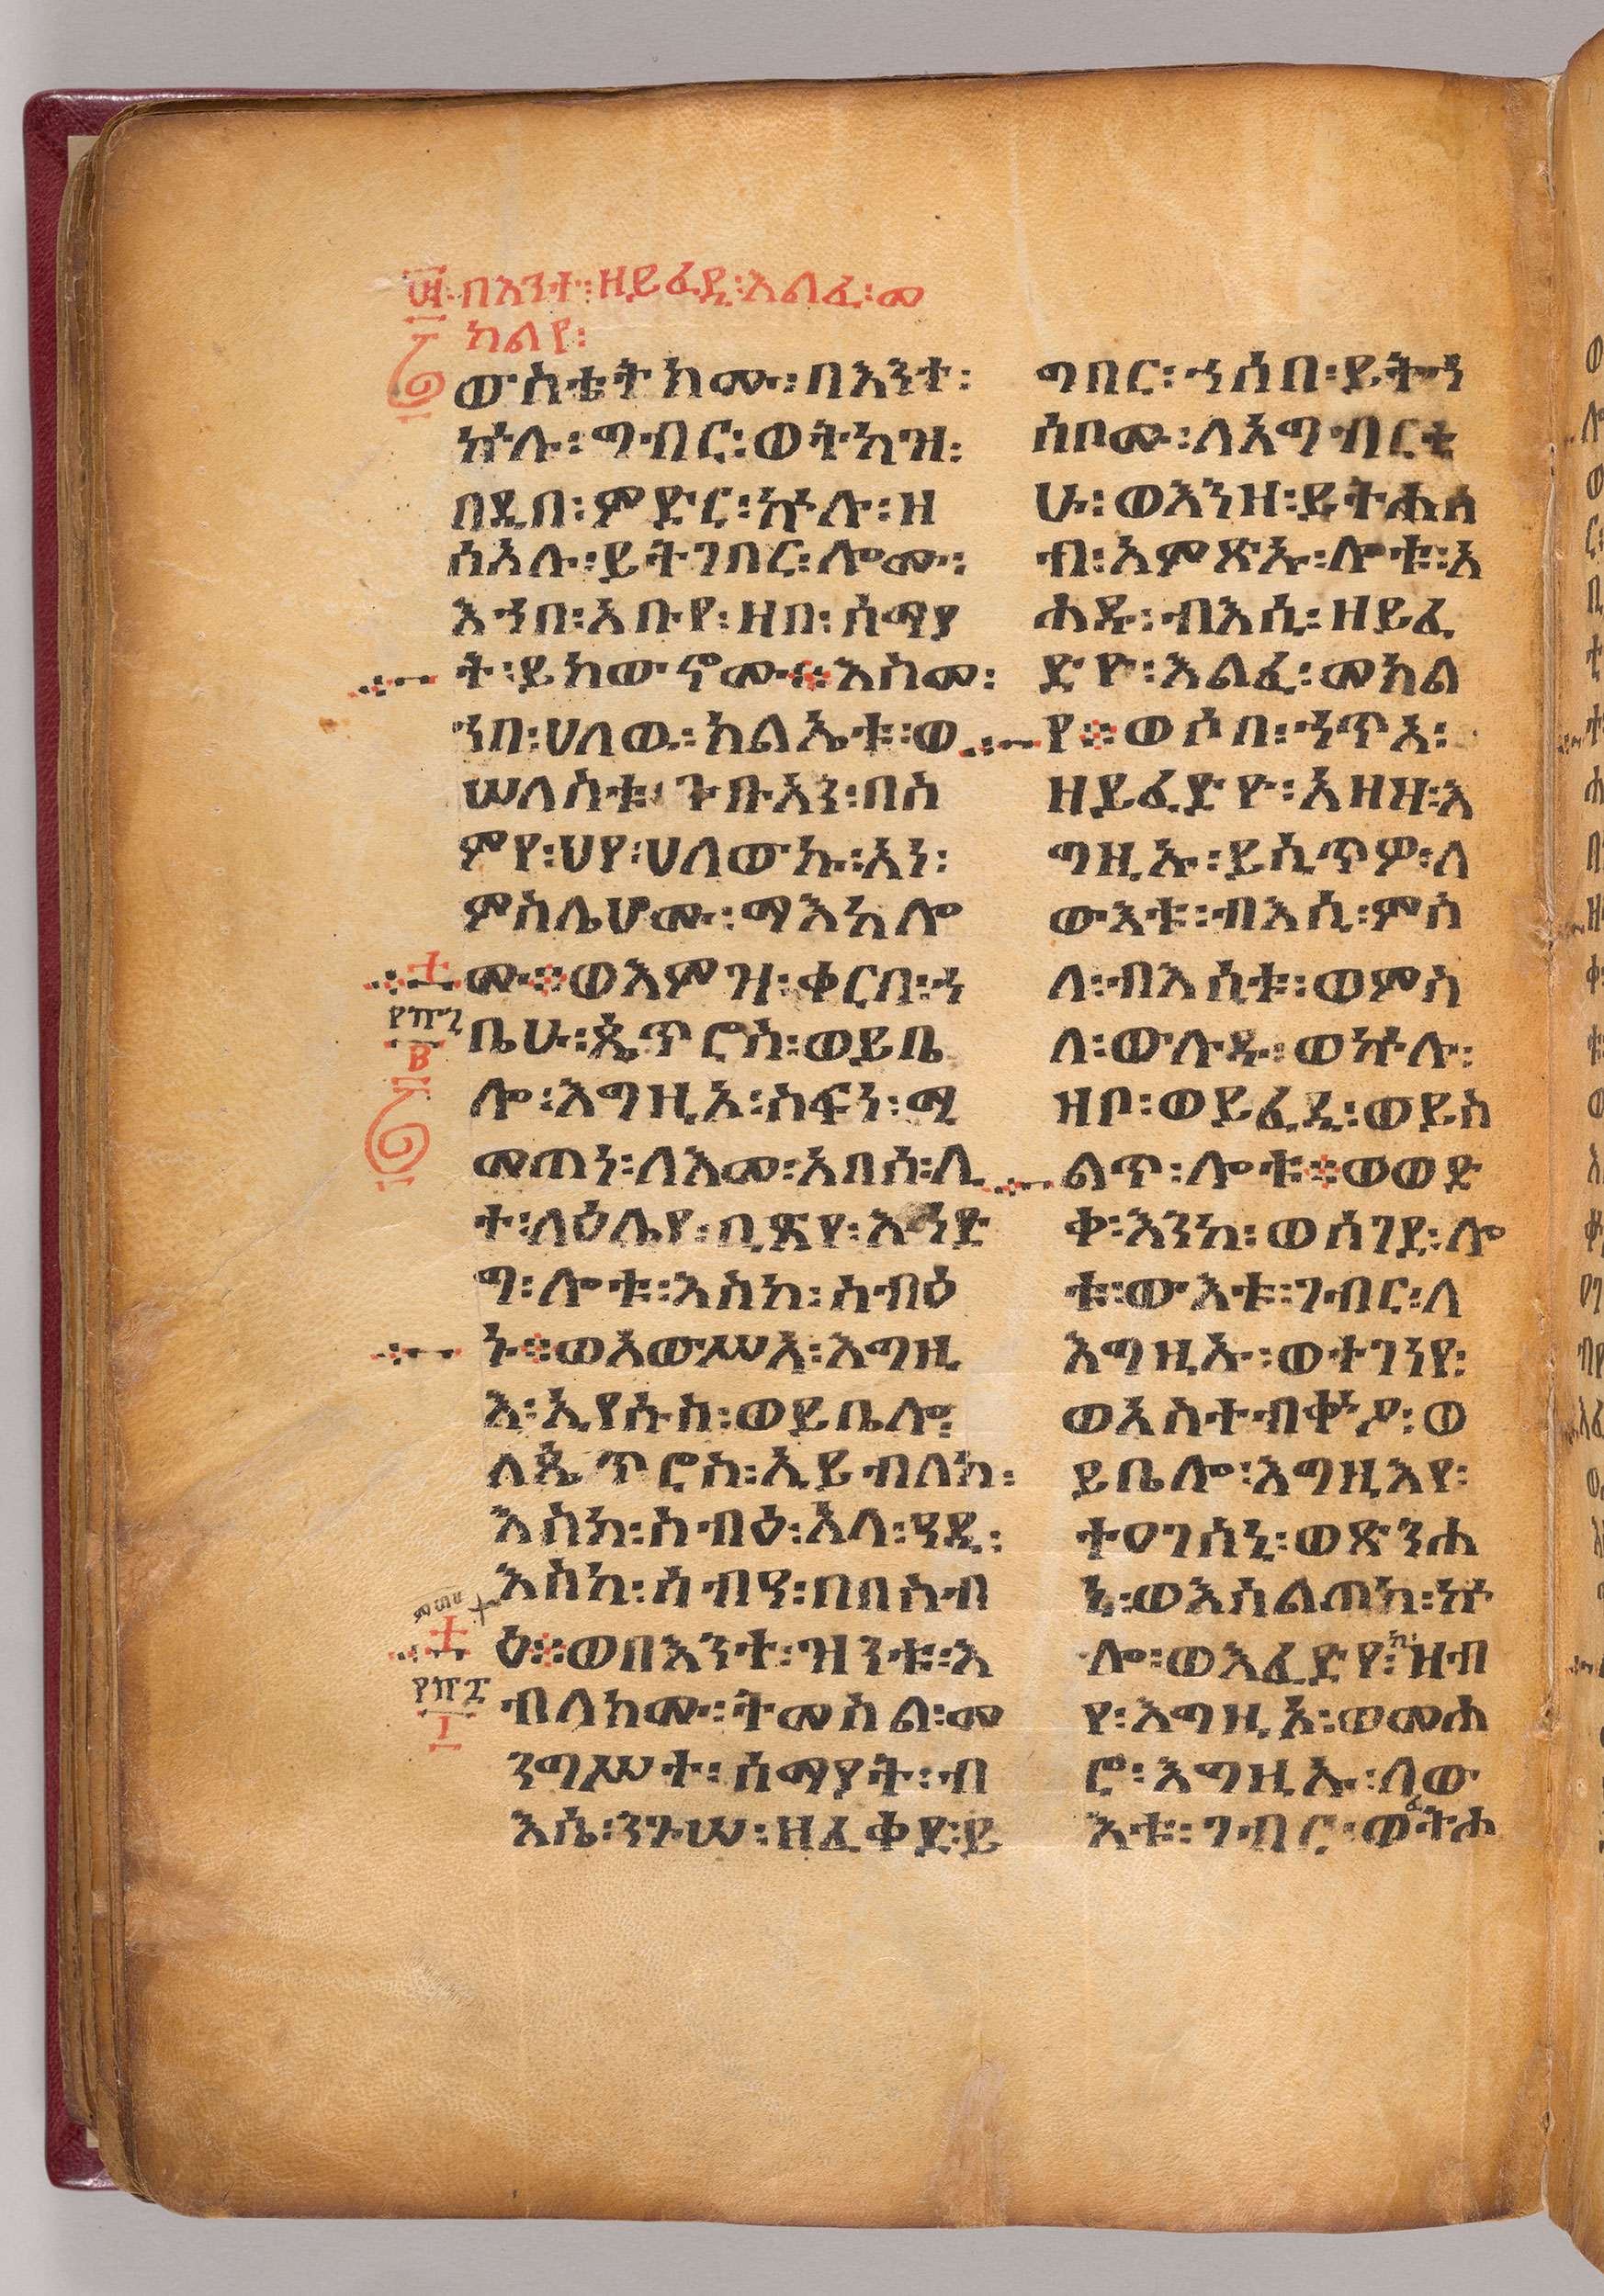 በእንተ፡ዘይፈዲ፡እልፈ፡መ
ክልየ፡
ውስቴትክሙ፡በእንተ፡
ኵሉ፡ግብር፡ወትካዝ፡
በዲበ፡ምድር፡ኵሉ፡ዘ
ሰአሉ፡ይትገበር፡ሎሙ፡
እኀበ፡አቡየ፡ዘበ፡ሰማያ
ት፡ይከውኖሙ፨እስመ፡
ኀበ፡ሀለዉ፡ክልኤቱ፡ወ
ሠለስቱ፡ጉቡአን፡በስ
ምየ፡ህየ፡ሀለውኩ፡አነ፡
ምስሌሆሙ፡ማእከሎ
ሙ፨ወእምዝ፡ቀርበ፡ኀ
ቤሁ፡ጴጥሮስ፡ወይቤ
ሎ፡እግዚኦ፡ስፍን፡ሚ
መጠነ፡ለእመ፡አበሰ፡ሊ
ተ፡ለዕሌየ፡ቢጽየ፡እኅድ
ግ፡ሎቱ፡እስከ፡ስብዕ
ኑ፨ወአውሥአ፡እግዚ
እ፡ኢየሱስ፡ወይቤሎ፡
ለጴጥሮስ፡ኢይብለከ፡
እስከ፡ስብዕ፡አላ፡ዓዲ፡
እስከ፡ሰብዓ፡በበስብ
ዕ፨ወበእንተ፡ዝንቱ፡እ
ብለክሙ፡ትመስል፡መ
ንግሥተ፡ሰማያት፡ብ
እሴ፡ንጉሠ፡ዘፈቀደ፡ይ
ግበር፡ኀሰበ፡ይትኀ
ሰቦሙ፡ለአግብርቲ
ሁ፡ወእንዘ፡ይትሐሰ
ብ፡አምጽኡ፡ሎቱ፡አ
ሐዱ፡ብእሲ፡ዘይፈ
ድዮ፡እልፈ፡መክል
የ፨ወሶበ፡ኀጥአ፡
ዘይፈድዮ፡አዘዘ፡እ
ግዚኡ፡ይሲጥዎ፡ለ
ውእቱ፡ብእሲ፡ምስ
ለ፡ብእሲቱ፡ወምስ
ለ፡ውሉዱ፡ወኵሉ፡
ዘቦ፡ወይፈዲ፡ወይስ
ልጥ፡ሎቱ፨ወወድ
ቀ፡እንከ፡ወሰገደ፡ሎ
ቱ፡ውእቱ፡ገብር፡ለ
እግዚኡ፡ወተገነየ፡
ወአስተብቍዖ፡ወ
ይቤሎ፡እግዚእየ፡
ተዐገሰኒ፡ወጽንሐ
ኒ፡ወእሰልጠከ፡ኵ
ሎ፡ወእፈድየከ፡ዝብ
የ፡እግዚኦ፡ወመሐ
ሮ፡እግዚኡ፡ለው
እቱ፡ገብር፡ወፈትሐ